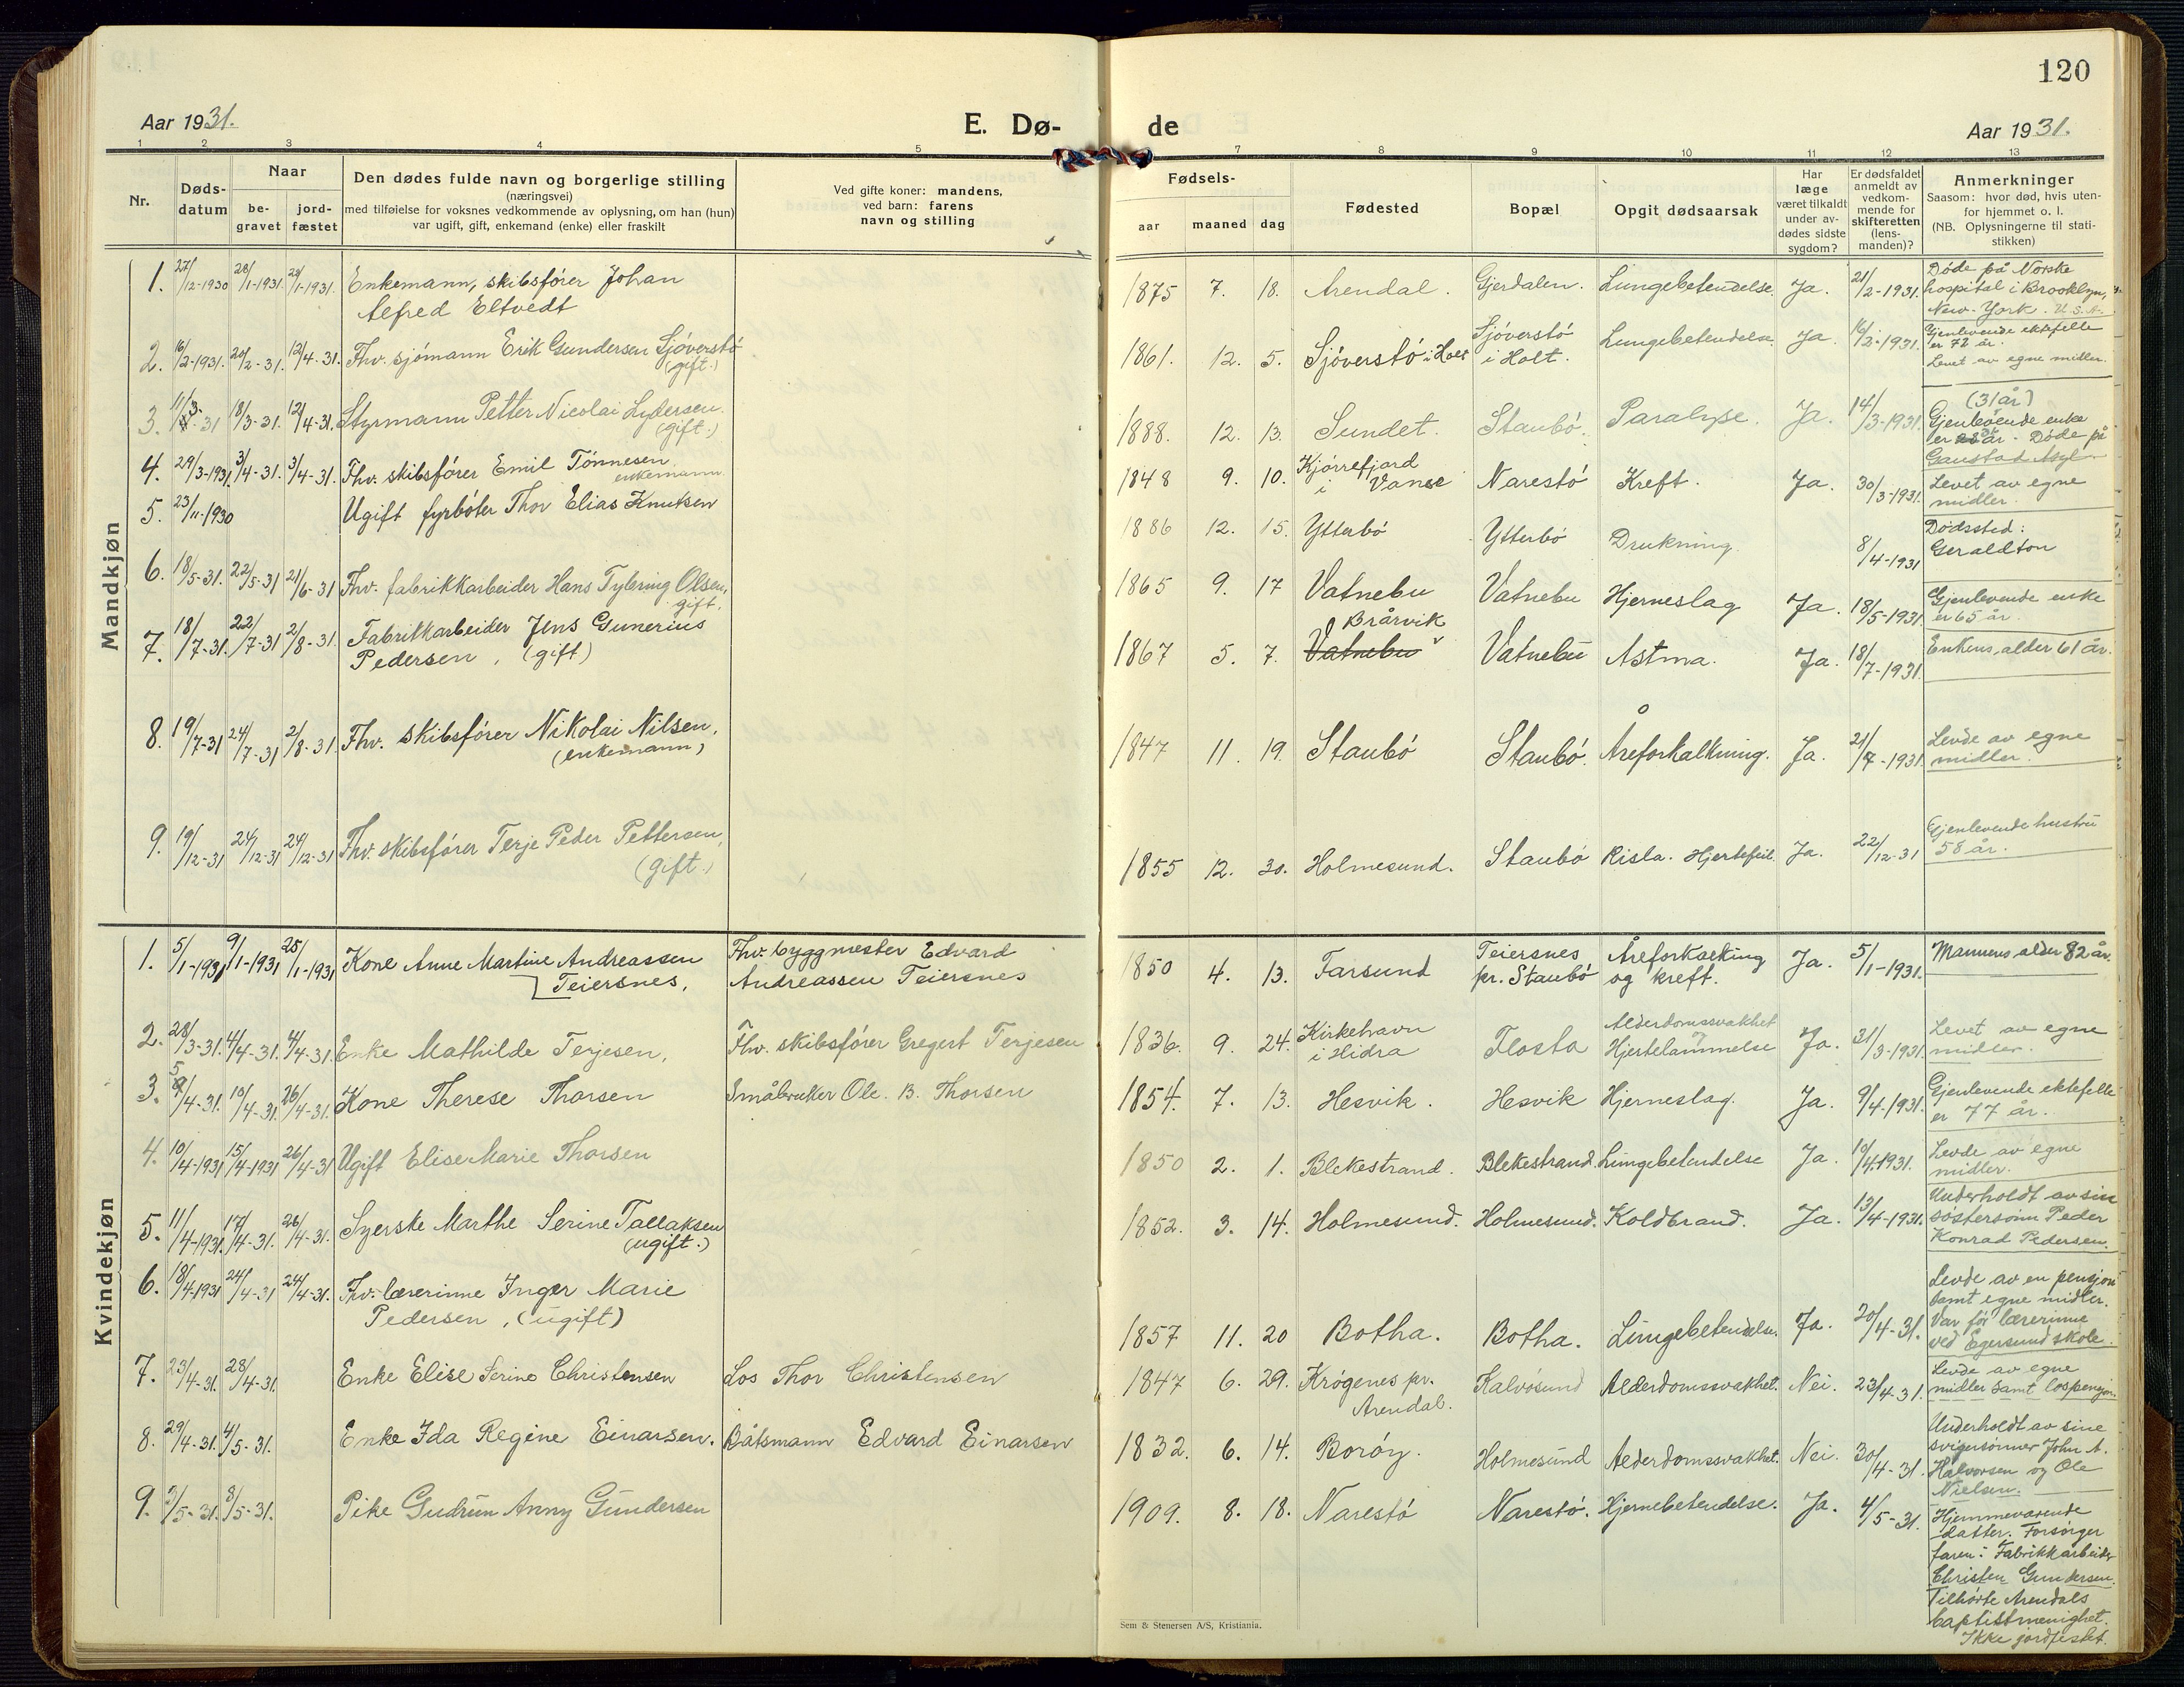 120
Aar 1931.
E. Dø-
de
Aar 1931.
1 2 3 4 5 7 8 9 10 11 12 13
Nr.
Døds-
datum
Naar
be-
gravet
jord-
fæstet
Den dødes fulde navn og borgerlige stilling
(næringsvei)
med tilføielse for voksnes vedkommende av oplysning, om han (hun)
var ugift, gift, enkemand (enke) eller fraskilt
Ved gifte koner: mandens,
ved barn: farens
navn og stilling
Fødsels-
aar
maaned
dag
Fødested
Bopæl
Opgit dødsaarsak
Har
læge
været tilkaldt
under av-
dødes sidste
sygdom?
Er dødsfaldet
anmeldt av
vedkom-
mende for
skifteretten
(lens-
manden)?
Anmerkninger
Saasom: hvor død, hvis uten-
for hjemmet o. l.
(NB. Oplysningerne til stati-
stikken)
Mandkjøn
1. 27/12-1930 28/1-1931. 28/1-1931. Enkemann, skibsfører Johan
Alfred Eltvedt
1875 7. 18. Arendal. Gjerdalen. Lungebetendelse. Ja. 21/2-1931.
Døde på Norske
hospital i Brooklyn,
New-York. U.S.A.
2. 16/2-1931. 20/2-31. 12/4-31. Fhv. sjømann Erik Gundersen Sjøverstø
(gift.)
1861. 12. 5. Sjøverstø i Holt Sjøverstø
i Holt. Lungebetendelse Ja. 16/2-1931.
Gjenlevende ektefelle
er 72 år.
Levet av egne midler.
3. 11/3-31 18/3-31. 12/4-31. Styrmann Petter Nicolai Lydersen.
(gift.)
1888. 12. 13. Sundet. Staubø. Paralyse. Ja. 14/3-1931.
(31 år)
Gjenlevende enke
er år. Døde på
Gaustad Asyl.
4. 29/3-1931. 3/4-31. 3/4-31. Fhv. skibsfører Emil Tønnesen,
enkemann
1848 9. 10. Kjørrefjord
i Vanse Narestø Kreft. Ja. 30/3-1931.
Levet av egne
midler.
5. 23/11-1930 Ugift fyrbøter Thor Elias Knutsen
1886 12. 15. Ytterbø Ytterbø Drukning. 8/4-1931
Dødssted:
Geraldton
6. 18/5-31. 22/5-31 21/6-31 Fhv. fabrikkarbeider Hans Tybring Olsen,
gift.
1865 9. 17 Vatnebu Vatnebu Hjerneslag Ja. 18/5-1931.
Gjenlevende enke
er 65 år.
7. 18/7-31. 22/7-31 2/8-31. Fabrikkarbeider Jens Gunerius
Pedersen, (gift)
1867 5. 7. Bråvik
Vatnebu Vatnebu Astma. Ja. 18/7-1931.
Enkens alder 61 år.
8. 19/7-31 24/7-31 2/8-31. Fhv. skibsfører Nikolai Nilsen,
(enkemann)
1847 11. 19. Staubø Staubø. Åreforkalkning. Ja. 21/7-1931.
Levde av egne
midler.
9. 19/12-31 24/12-31 24/12-31 Fhv. skibsfører Terje Peder Pettersen,
(gift.)
1855 12. 30. Holmesund. Staubø Hjertefeil. Ja. 22/12-31
Gjenlevende hustru
58 år.
Kvindekjøn
1. 5/1-1931 9/1-1931 25/1-1931 Kone Anne Martine Andreassen
Teiersnes,
Fhv. byggmester Edvard
Andreassen Teiersnes
1850 4. 13. Farsund Teiersnes
pr. Staubø Åreforkalking
og kreft. Ja. 5/1-1931.
Mannens alder 82 år.
2. 28/3-31. 4/4-31. 4/4-31. Enke Mathilde Terjesen, Fhv. skibsfører Gregert Terjesen
1836. 9. 24. Kirkehavn
i Hidra Flosta Alderdomssvakhet
og
Hjertelammelse Ja. 31/3-1931.
Levet av egne
midler.
3. 5/4-31. 10/4-31. 26/4-31. Kone Therese Thorsen Småbruker Ole. B. Thorsen
1854. 7. 13. Hesvik. Hesvik Hjerneslag. Ja. 9/4-1931.
Gjenlevende ektefelle
er 77 år.
4. 10/4-1931 15/4-1931 26/4-31 Ugift Elise Marie Thorsen
1850 2. 1. Blekestrand. Blekestrand. Lungebetendelse Ja. 10/4-1931.
Levde av egne
midler.
5. 11/4-1931. 17/4-31. 26/4-31. Syerske Marthe Serine Tallaksen
(ugift.)
1852. 3. 14. Holmesund. Holmesund. Koldbrand. Ja. 13/4-1931.
Underholdt av sin
søstersønn Peder
Konrad Pedersen.
6. 18/4-1931 24/4-31 24/4-31. Fhv. lærerinne Inger Marie
Pedersen, (ugift)
1857 11. 20 Botha. Botha. Lungebetendelse. Ja. 20/4-31.
Levde av en pensjon
samt egne midler.
Var før lærerinne
ved Egersund skole.
7. 23/4-31. 28/4-31. Enke Elise Serine Christensen Los Thor Christensen
1847 6. 29. Krøgenes pr.
Arendal. Kalvøsund Alderdomssvakhet. Nei. 23/4-31.
Levde av egne
midler samt lospensjon
8. 29/4-31. 4/5-31. Enke Ida Regine Einarsen. Båtsmann Edvard Einarsen
1832. 6. 14. Borøy. Holmesund Alderdomssvakhet. Nei. 30/4-31.
Underholdt av sine
svigersønner John A.
Halvorsen og Ole
Nielsen.
9. 3/5-31. 8/5-31. Pike Gudrun Anny Gundersen
1909. 8. 18. Narestø Narestø. Hjernebetendelse. Ja. 4/5-31.
Hjemmeværende
datter. Forsørger
faren: Fabrikkarbeider
Christen Gundersen.
Tilhørte Arendals
baptistmenighet.
Ikke jordfestet.
Sem & Stenersen A/S, Kristiania.